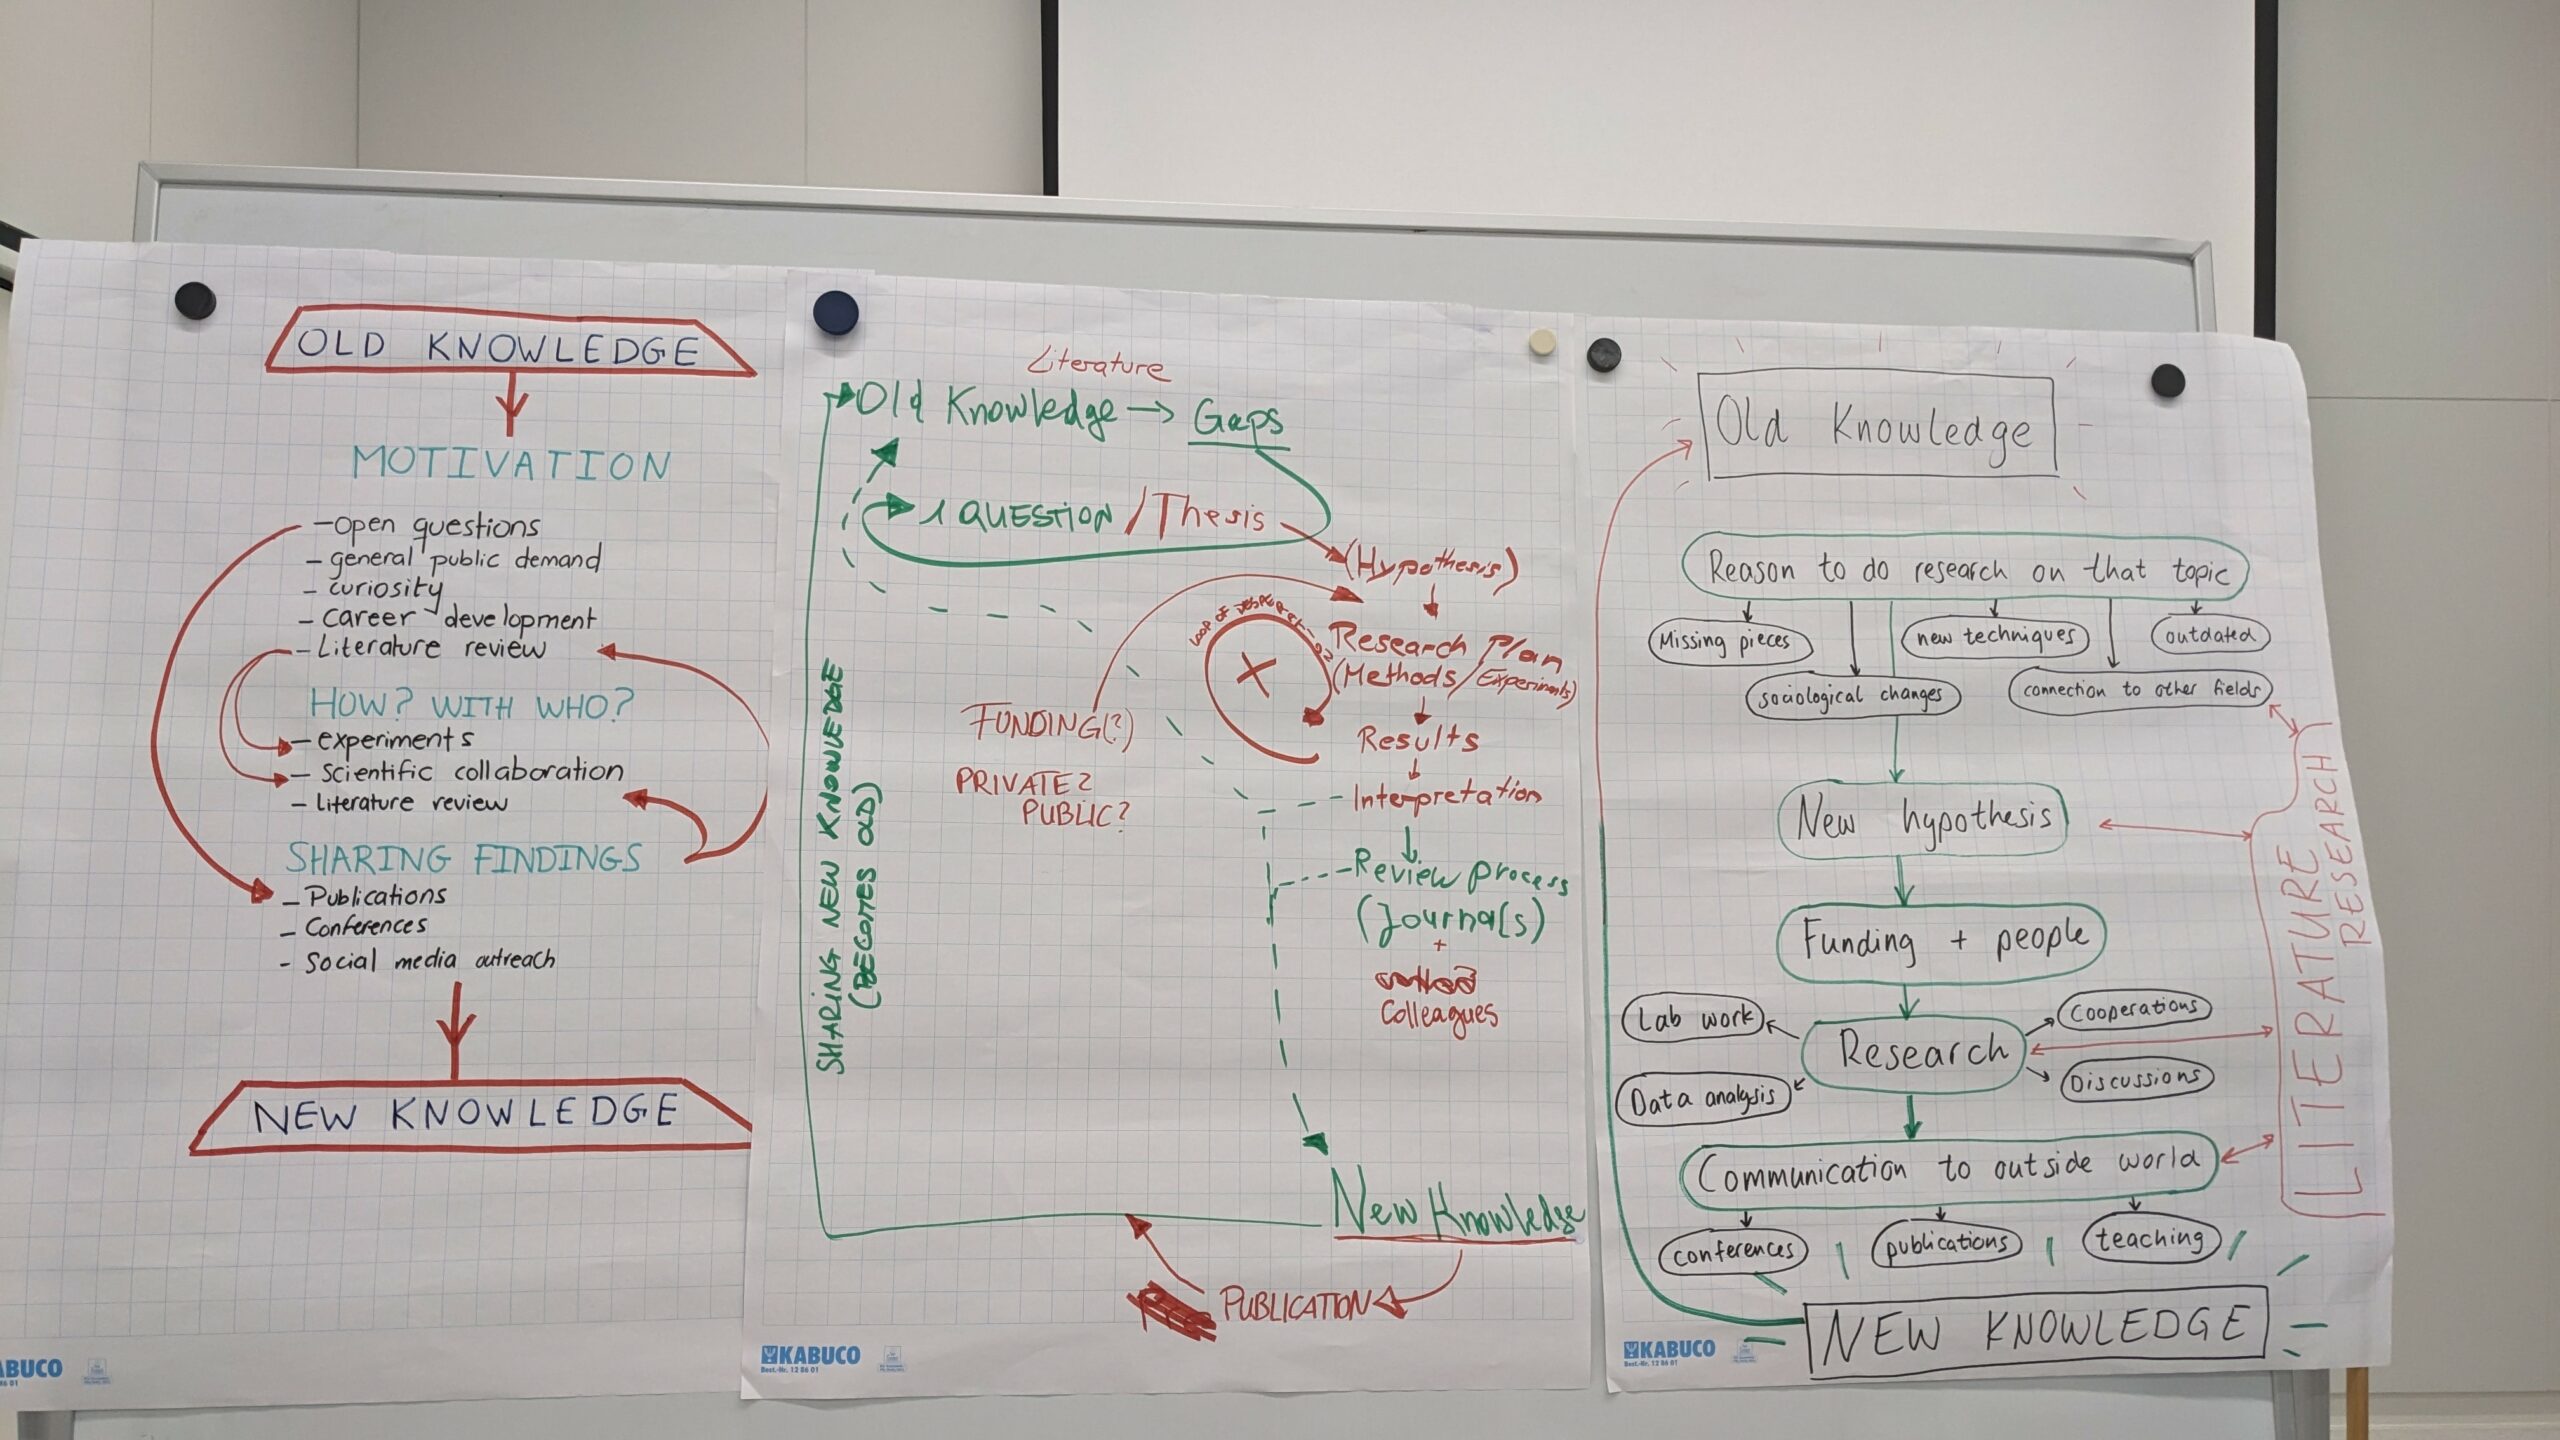 OLD KNOWLEDGE
MOTIVATION
- open questions
- general public demand
- curiosity
- career development
- Literature review
HOW? WITH WHO?
- experiments
- scientific collaboration
- literature review
SHARING FINDINGS
- Publications
- Conferences
- Social media outreach
NEW KNOWLEDGE
ABUCO
Literature
Old Knowledge → Gaps
1 QUESTION / Thesis
(Hypothesis)
LOOP OF
Research Plan
(Methods/Experiments)
FUNDING(?)
PRIVATE?
PUBLIC?
Results
Interpretation
Review process
(Journals)
+
Colleagues
SHARING NEW KNOWLEDGE
(BECOMES OLD)
New Knowledge
PUBLICATION
KABUCO
Best.-Nr. 12 86 01
Old Knowledge
Reason to do research on that topic
Missing pieces
new techniques
outdated
sociological changes
connection to other fields
New hypothesis
Funding + people
Lab work
Cooperations
Research
Data analysis
Discussions
Communication to outside world
conferences
publications
teaching
NEW KNOWLEDGE
LITERATURE
RESEARCH
KABUCO
Best.-Nr. 12 86 01